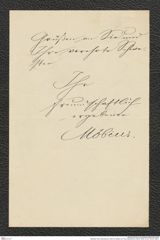 Grüßen an Sie und
Ihre verehrte Schwe-
ster
Ihr
freundschaftlich
ergebener
Möbius.